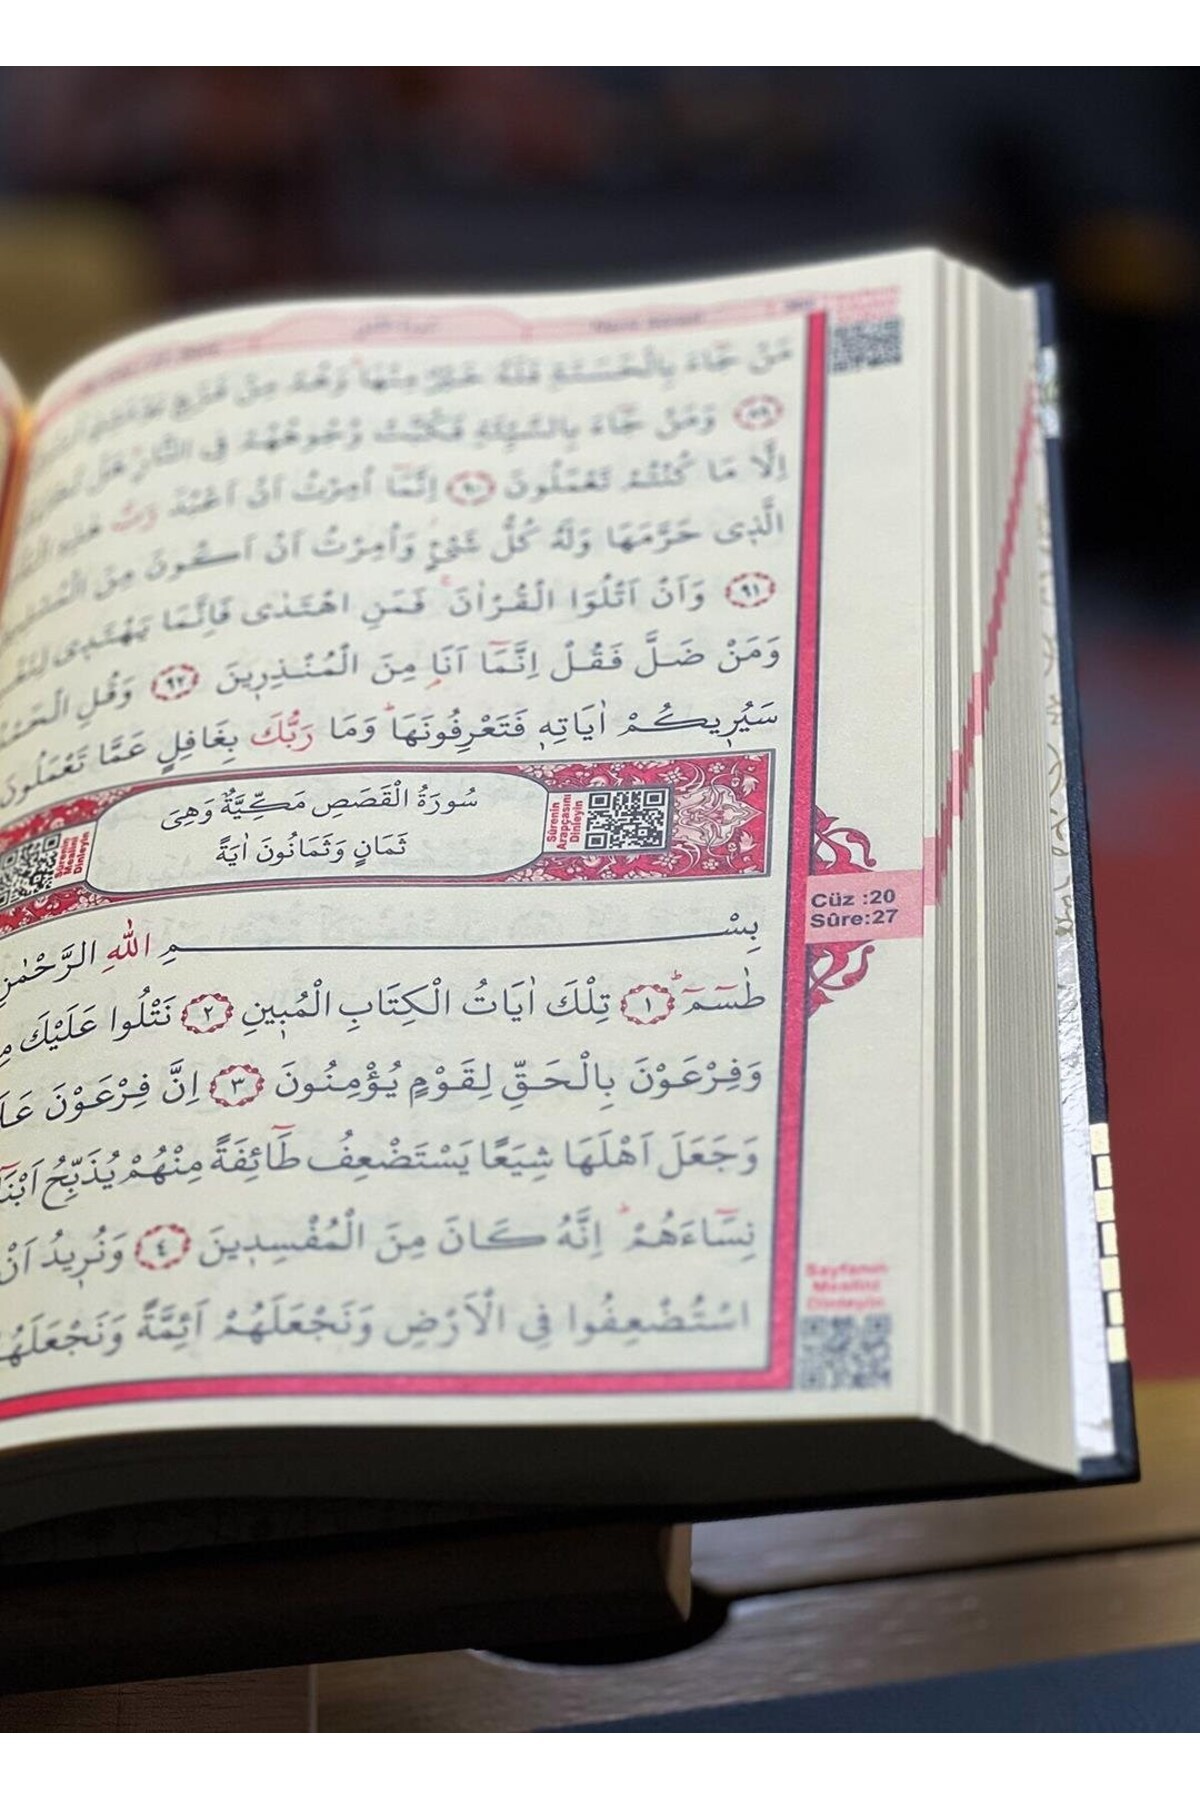 مَنْ جَٓاءَ بِالْحَسَنَةِ فَلَهُ خَيْرٌ مِنْهَا وَهُمْ مِنْ فَزَعٍ يَوْمَئِذٍ
﴿٨٩﴾ وَمَنْ جَٓاءَ بِالسَّيِّئَةِ فَكُبَّتْ وُجُوهُهُمْ فِي النَّارِ هَلْ
اِلَّا مَا كُنْتُمْ تَعْمَلُونَ ﴿٩٠﴾ اِنَّمَٓا اُمِرْتُ اَنْ اَعْبُدَ رَبَّ هٰذِهِ
الَّذ۪ي حَرَّمَهَا وَلَهُ كُلُّ شَيْءٍ وَاُمِرْتُ اَنْ اَكُونَ مِنَ
﴿٩١﴾ وَاَنْ اَتْلُوَا الْقُرْاٰنَ فَمَنِ اهْتَدٰى فَاِنَّمَا يَهْتَد۪ي
وَمَنْ ضَلَّ فَقُلْ اِنَّمَٓا اَنَا۬ مِنَ الْمُنْذِر۪ينَ ﴿٩٢﴾ وَقُلِ
سَيُر۪يكُمْ اٰيَاتِه۪ فَتَعْرِفُونَهَاۜ وَمَا رَبُّكَ بِغَافِلٍ عَمَّا تَعْمَلُونَ
سُورَةُ الْقَصَصِ مَكِّيَّةٌ وَهِيَ
ثَمَانٍ وَثَمَانُونَ اٰيَةً
Sûrenin
Arapçasını
Dinleyin
Sûrenin
Mealini
Dinleyin
Cüz :20
Sûre:27
بِسْمِ اللّٰهِ الرَّحْمٰنِ
طٰسٓمٓۜ ﴿١﴾ تِلْكَ اٰيَاتُ الْكِتَابِ الْمُب۪ينِ ﴿٢﴾ نَتْلُوا عَلَيْكَ
وَفِرْعَوْنَ بِالْحَقِّ لِقَوْمٍ يُؤْمِنُونَ ﴿٣﴾ اِنَّ فِرْعَوْنَ
وَجَعَلَ اَهْلَهَا شِيَعًا يَسْتَضْعِفُ طَٓائِفَةً مِنْهُمْ يُذَبِّحُ
نِسَٓاءَهُمْۜ اِنَّهُ كَانَ مِنَ الْمُفْسِد۪ينَ ﴿٤﴾ وَنُر۪يدُ اَنْ
اسْتُضْعِفُوا فِي الْاَرْضِ وَنَجْعَلَهُمْ اَئِمَّةً وَنَجْعَلَهُمُ
Sayfanın
Mealini
Dinleyin